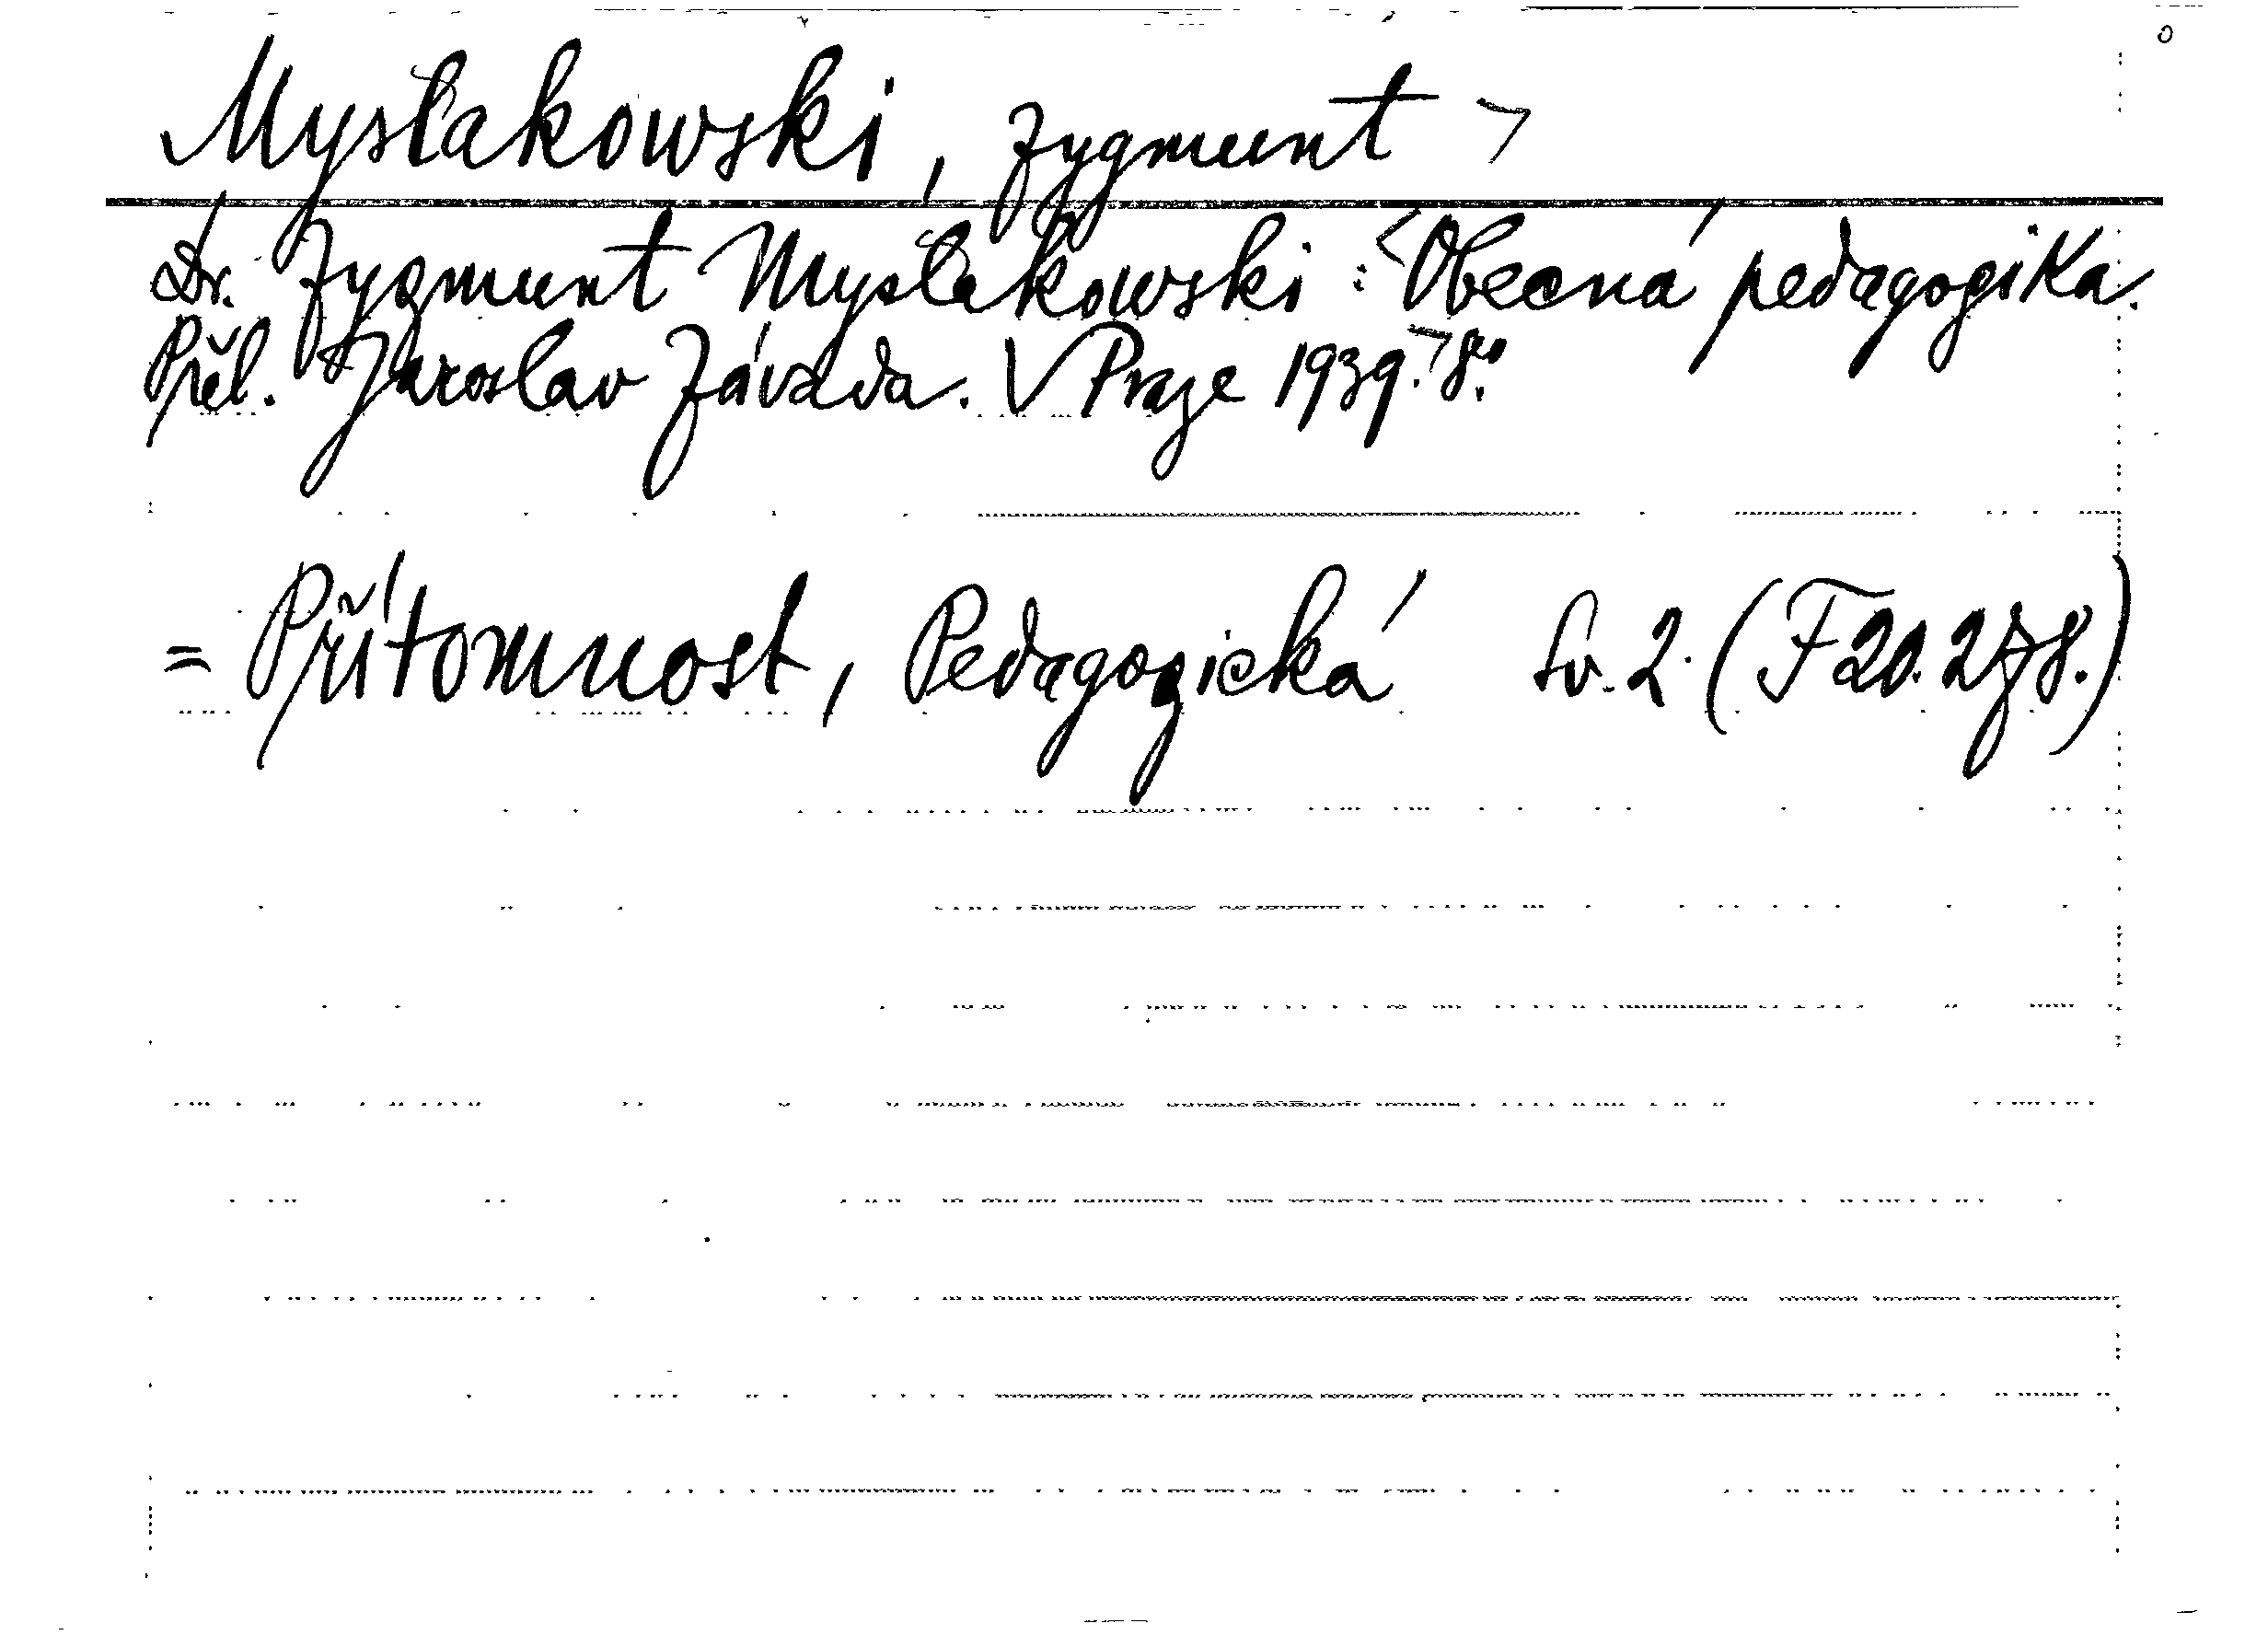 Mysłakowski, Zygmunt >
Dr. Zygmunt Mysłakowski: <Obecná pedagogika.
Přel. Jaroslav Závada. V Praze 1939.> 8º.
= Přítomnost, Pedagogická Sv. 2. (F 20.278.)